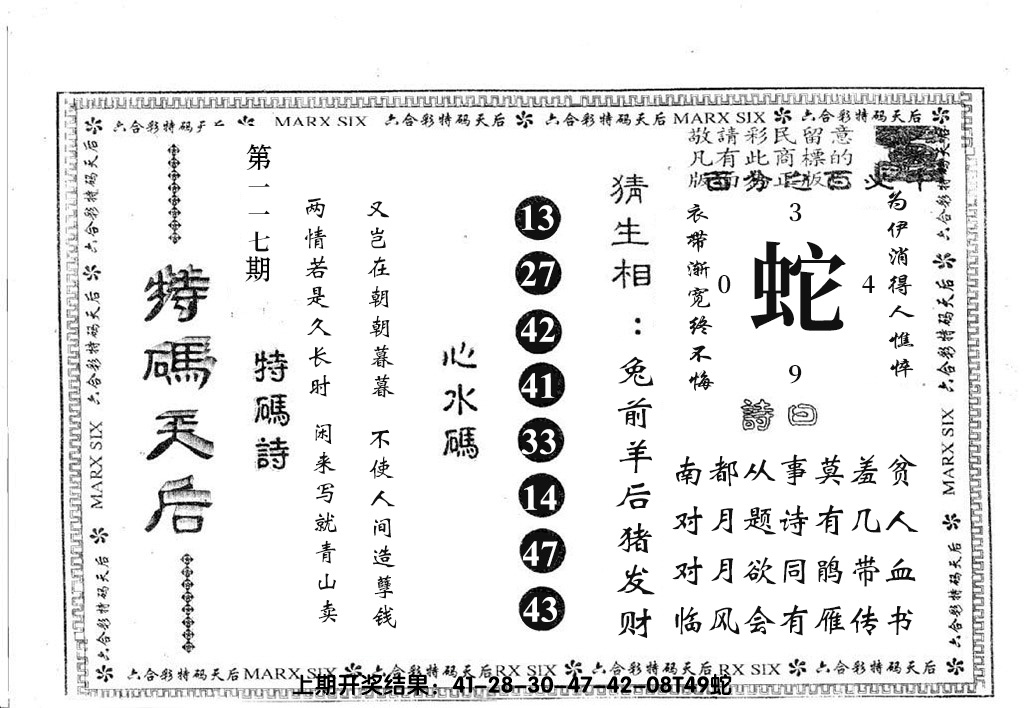 六合彩特码天后 MARX SIX 六合彩特码天后 六合彩特码天后 MARX SIX 六合彩特码天后
敬請彩民留意
凡有此商標的
版面为正版
第一一七期
特碼天后
特碼詩
两情若是久长时 又岂在朝朝暮暮
闲来写就青山卖 不使人间造孽钱
心水碼
13
27
42
41
33
14
47
43
猜生相：兔前羊后猪发财
衣带渐宽终不悔
为伊消得人憔悴
3
0 蛇 4
9
詩曰
南都从事莫羞贫
对月题诗有几人
对月欲同鹃带血
临风会有雁传书
六合彩特码天后
MARX SIX
六合彩特码天后
六合彩特码天后
六合彩特码天后
MARX SIX
六合彩特码天后
六合彩特码天后MARX SIX 六合彩特码天后RX SIX 六合彩特码天后RX SIX 六合彩特码天后
上期开奖结果：41-28-30-47-42-08T49蛇